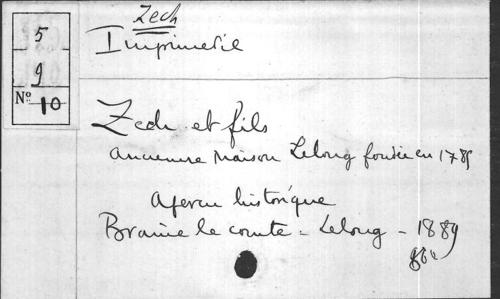 5
9
Nº 10
Zech
Imprimerie
Zech et fils
ancienne Maison Lelong fondée en 1785
Apercu historique
Braine le comte - Lelong - 1889